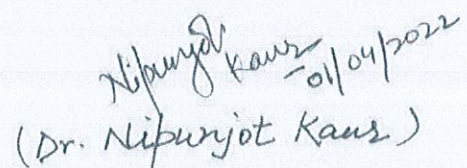 Nipunjot Kaur
01/04/2022
(Dr. Nipunjot Kaur)